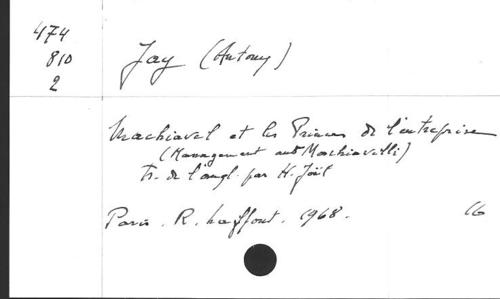 474
810
2
Jay (Antony)
Machiavel et les Princes de l'entreprise
(Management and Machiavelli)
tr. de l'angl. par H. Joël
Paris. R. Laffont. 1968. 16